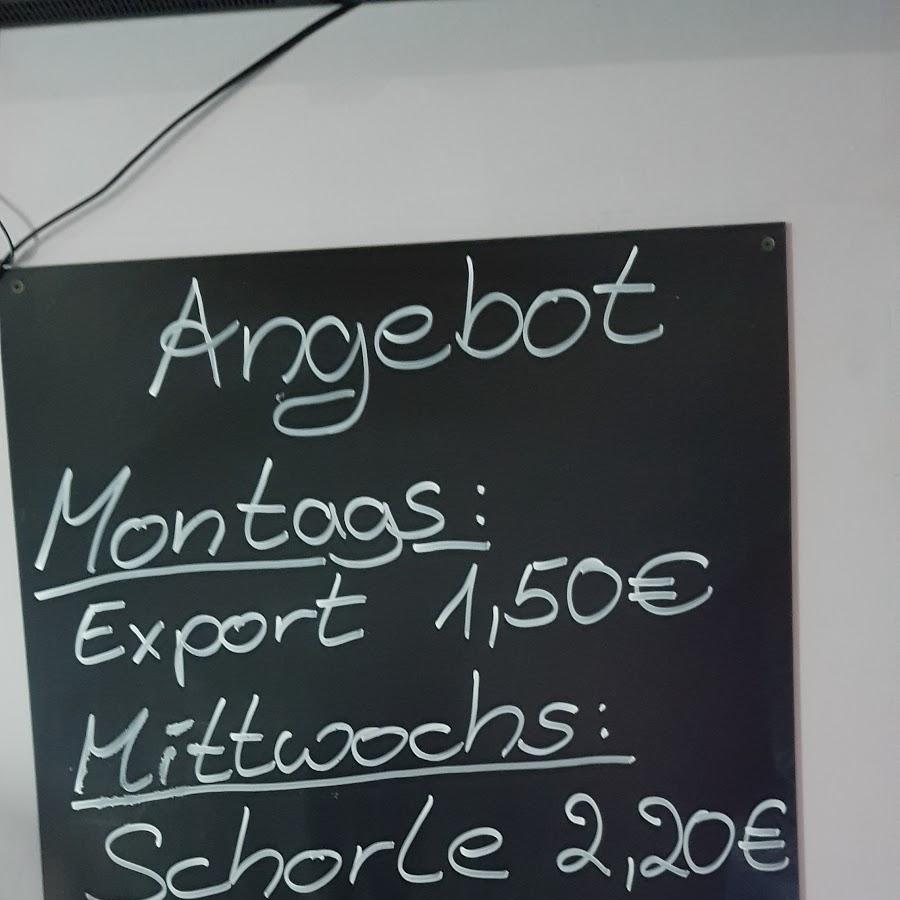 Angebot
Montags:
Export 1,50€
Mittwochs:
Schorle 2,20€